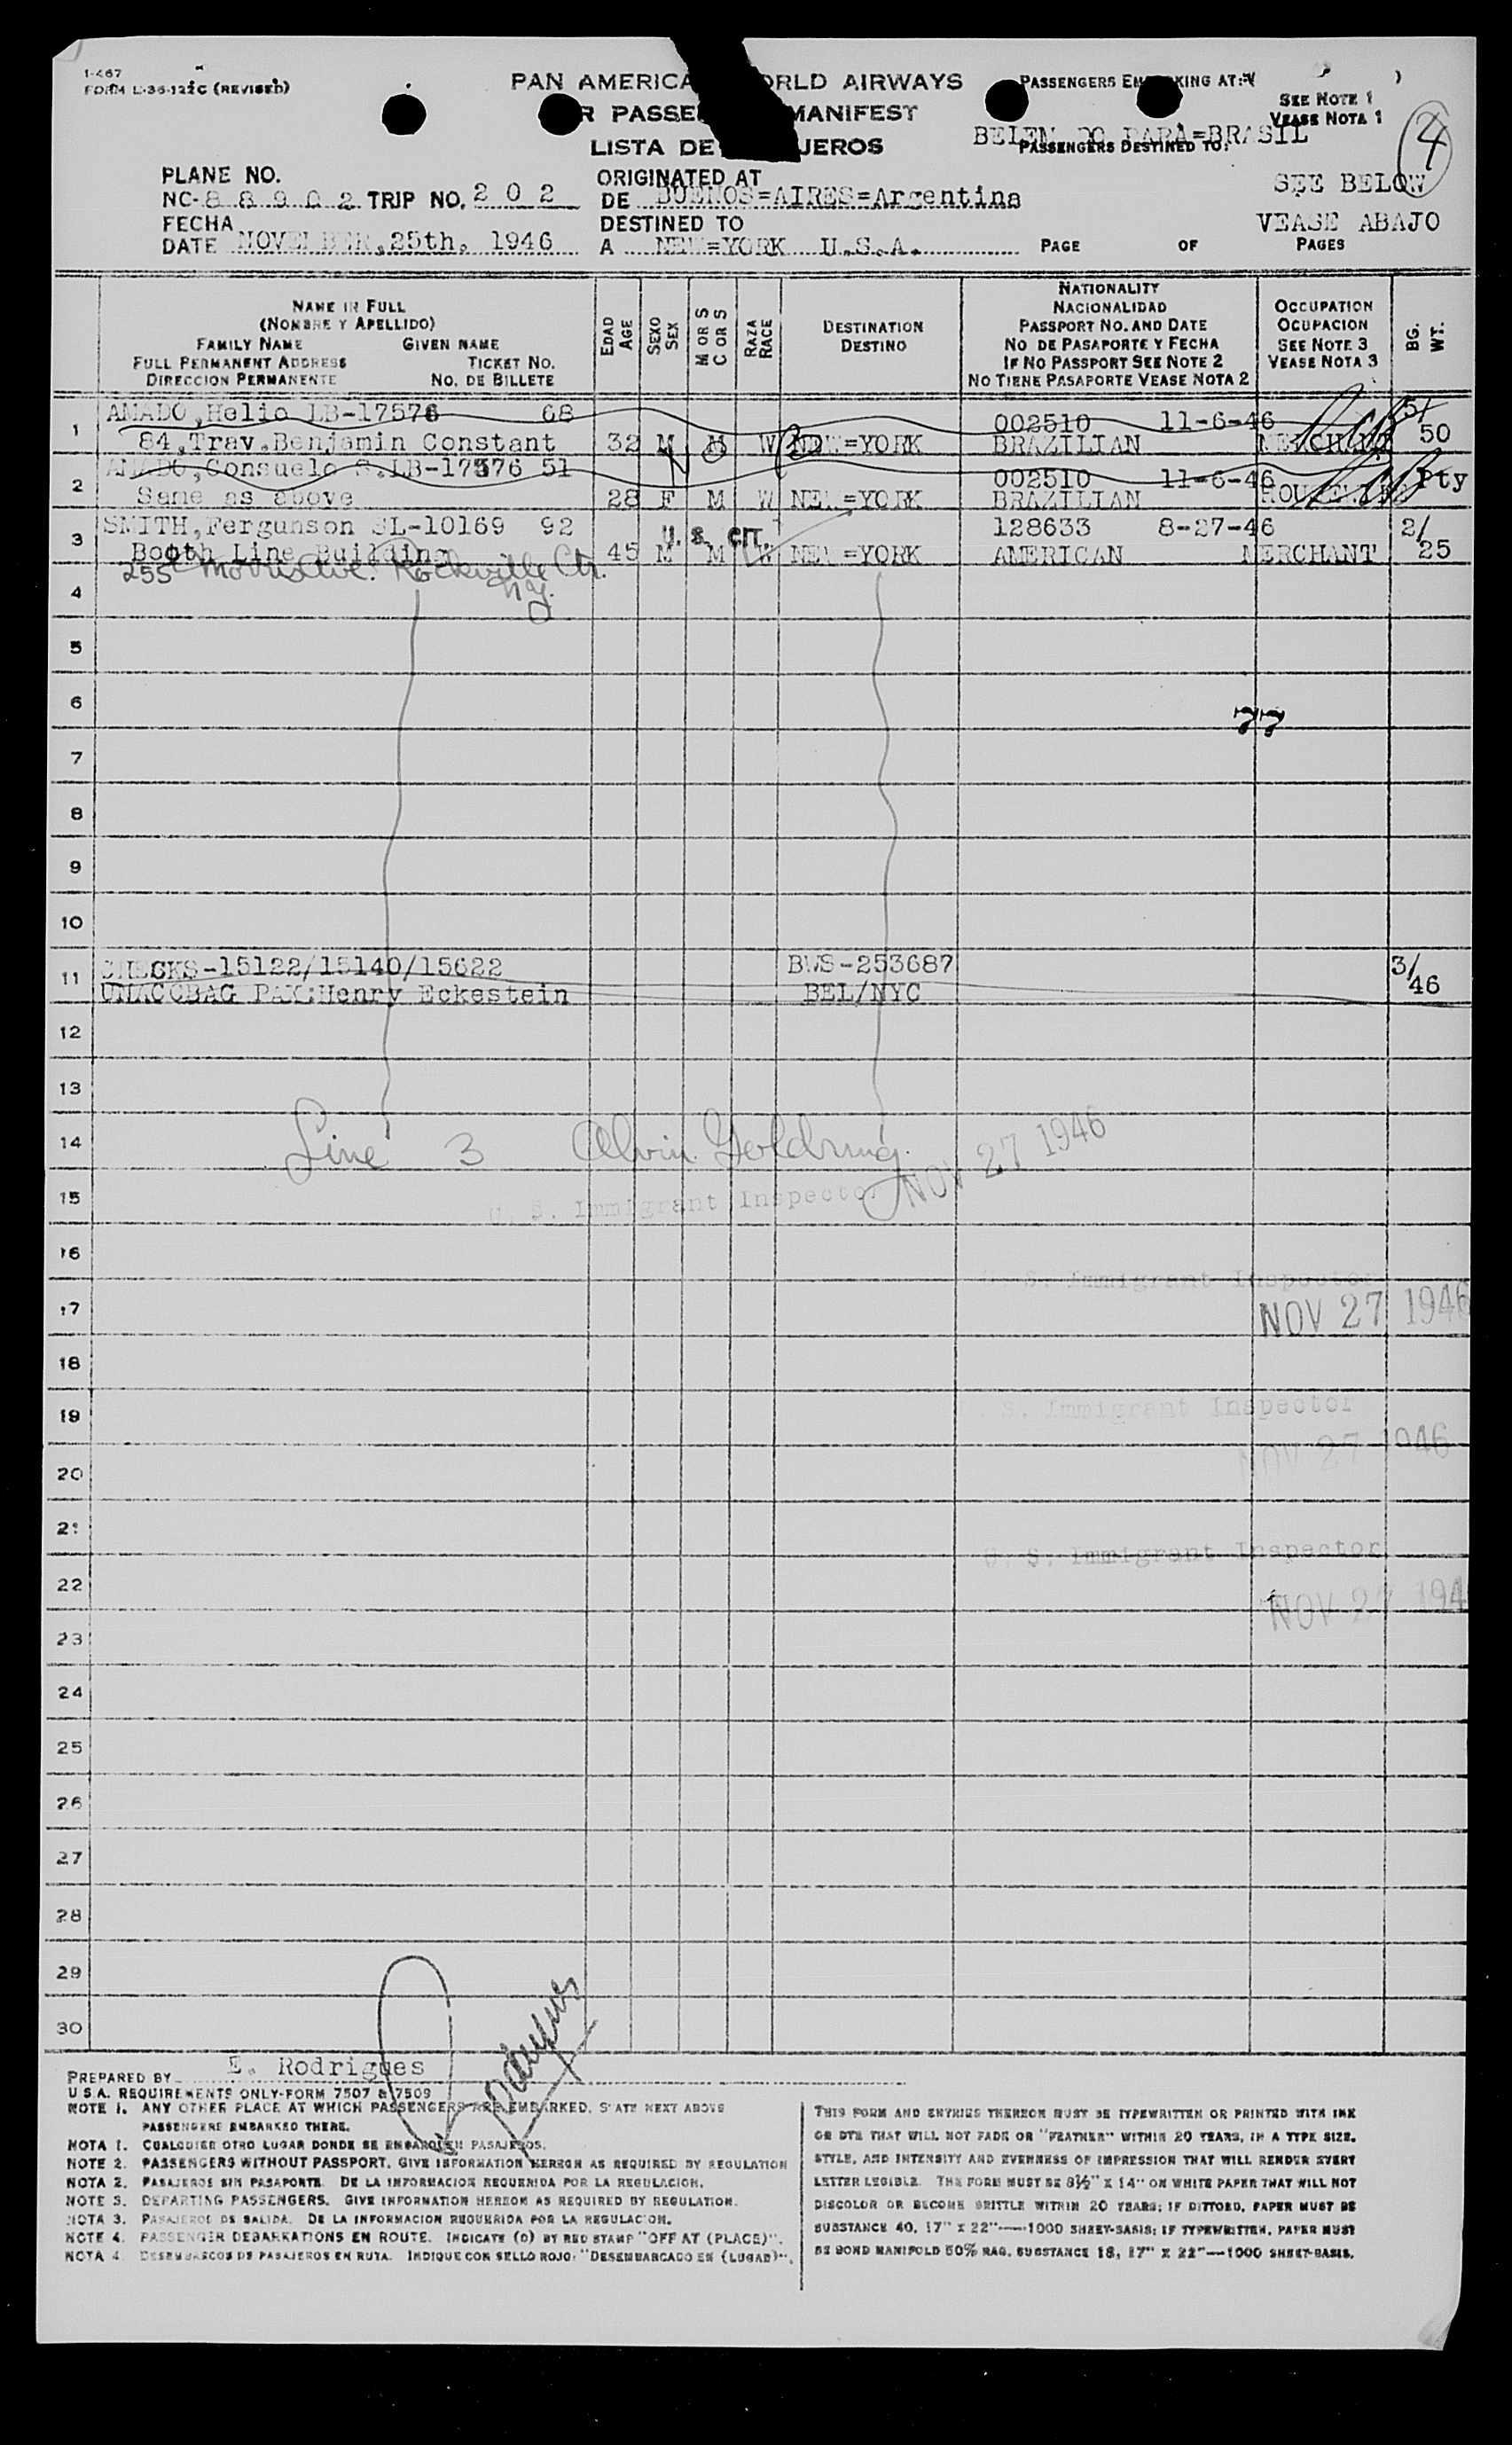 1-467
FORM L-36-122C (REVISED)
PAN AMERICA ORLD AIRWAYS
R PASSE MANIFEST
LISTA DE JEROS
PASSENGERS EM KING AT:
BELEM DO PARA=BRASIL
PASSENGERS DESTINED TO:
SEE NOTE 1
VEASE NOTA 1
4
SEE BELOW
VEASE ABAJO
PLANE NO.
NC-88902 TRIP NO. 202
FECHA
DATE NOVEMBER,25th, 1946
ORIGINATED AT
DE BUENOS=AIRES=Argentina
DESTINED TO
A NEW=YORK U.S.A.
PAGE OF PAGES
NAME IN FULL
(NOMBRE Y APELLIDO)
FAMILY NAME GIVEN NAME
FULL PERMANENT ADDRESS TICKET NO.
DIRECCION PERMANENTE NO. DE BILLETE
EDAD
AGE
SEXO
SEX
M OR S
C OR S
RAZA
RACE
DESTINATION
DESTINO
NATIONALITY
NACIONALIDAD
PASSPORT NO. AND DATE
NO DE PASAPORTE Y FECHA
IF NO PASSPORT SEE NOTE 2
NO TIENE PASAPORTE VEASE NOTA 2
OCCUPATION
OCUPACION
SEE NOTE 3
VEASE NOTA 3
BG.
WT.
1 AMADO,Helio LB-17576 68 002510 11-6-46 5/
84,Trav.Benjamin Constant 32 M M W NEW=YORK BRAZILIAN MERCHANT 50
2 AMADO,Consuelo S.LB-17576 51 002510 11-6-46 Pty
Same as above 28 F M W NEW=YORK BRAZILIAN
3 SMITH,Fergunson SL-10169 92 U. S. CIT. 128633 8-27-46 2/
Booth Line Building 45 M M W NEW=YORK AMERICAN MERCHANT 25
255 Morris Ave. Rockville Ctr.
N.Y.
4
5
6
77
7
8
9
10
11 CHECKS-15122/15140/15622 BWS-253687 3/
UNACCBAG PAX:Henry Eckestein BEL/NYC 46
12
13
14 Line 3 Alvin Goldring NOV 27 1946
15 U. S. Immigrant Inspector
16
U. S. Immigrant Inspector
17 NOV 27 1946
18
19 S. Immigrant Inspector
20 NOV 27 1946
21
U. S. Immigrant Inspector
22 NOV 27 194
23
24
25
26
27
28
29
30
PREPARED BY E. Rodrigues
Rodrigues
U.S.A. REQUIREMENTS ONLY-FORM 7507 & 7509
NOTE 1. ANY OTHER PLACE AT WHICH PASSENGERS ARE EMBARKED, STATE NEXT ABOVE
PASSENGERS EMBARKED THERE.
NOTA 1. CUALQUIER OTRO LUGAR DONDE SE EMBARQUEN PASAJEROS.
NOTE 2. PASSENGERS WITHOUT PASSPORT. GIVE INFORMATION HEREON AS REQUIRED BY REGULATION
NOTA 2. PASAJEROS SIN PASAPORTE. DE LA INFORMACION REQUERIDA POR LA REGULACION.
NOTE 3. DEPARTING PASSENGERS. GIVE INFORMATION HEREON AS REQUIRED BY REGULATION.
NOTA 3. PASAJEROS DE SALIDA. DE LA INFORMACION REQUERIDA POR LA REGULACION.
NOTE 4. PASSENGER DEBARKATIONS EN ROUTE. INDICATE (D) BY RED STAMP "OFF AT (PLACE)".
NOTA 4. DESEMBARCOS DE PASAJEROS EN RUTA. INDIQUE CON SELLO ROJO: "DESEMBARCADO EN (LUGAR)".
THIS FORM AND ENTRIES THEREON MUST BE TYPEWRITTEN OR PRINTED WITH INK
OR DYE THAT WILL NOT FADE OR "FEATHER" WITHIN 20 YEARS, IN A TYPE SIZE,
STYLE, AND INTENSITY AND EVENNESS OF IMPRESSION THAT WILL RENDER EVERY
LETTER LEGIBLE. THE FORM MUST BE 8½" X 14" ON WHITE PAPER THAT WILL NOT
DISCOLOR OR BECOME BRITTLE WITHIN 20 YEARS; IF DITTOED, PAPER MUST BE
SUBSTANCE 40, 17" X 22"—1000 SHEET-BASIS; IF TYPEWRITTEN, PAPER MUST
BE BOND MANIFOLD 50% RAG, SUBSTANCE 18, 17" X 22"—1000 SHEET-BASIS.